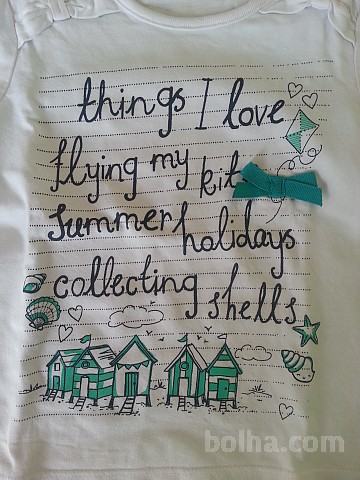 things I love
flying my kit
summer holidays
collecting shells
bolha.com